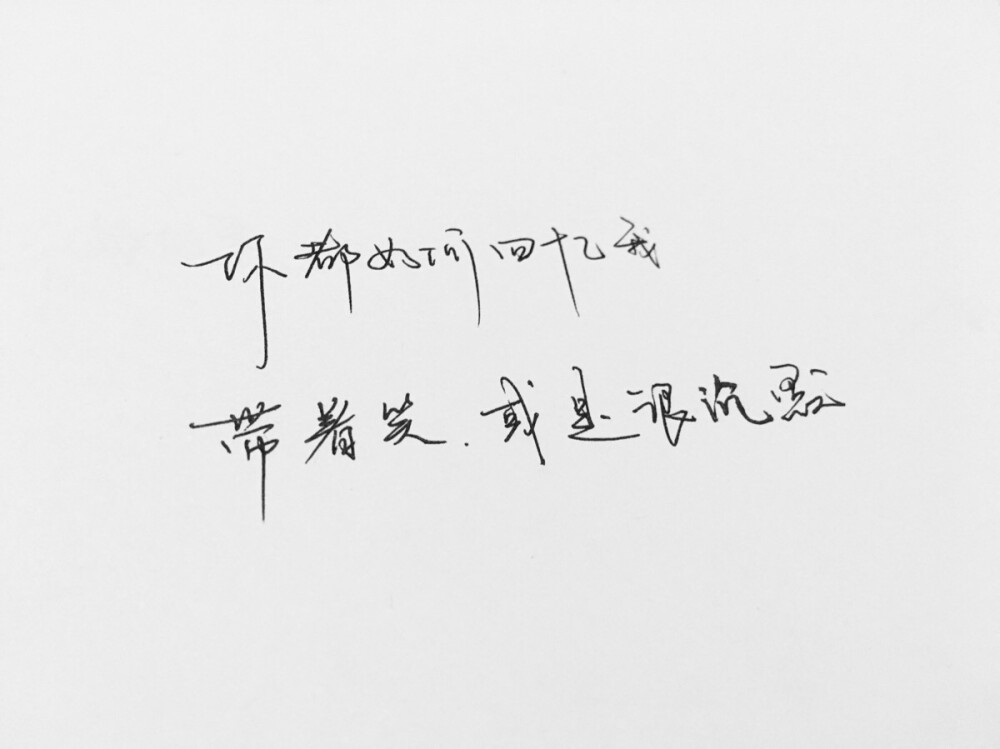 你都如何回忆我
带着笑.或是很沉默